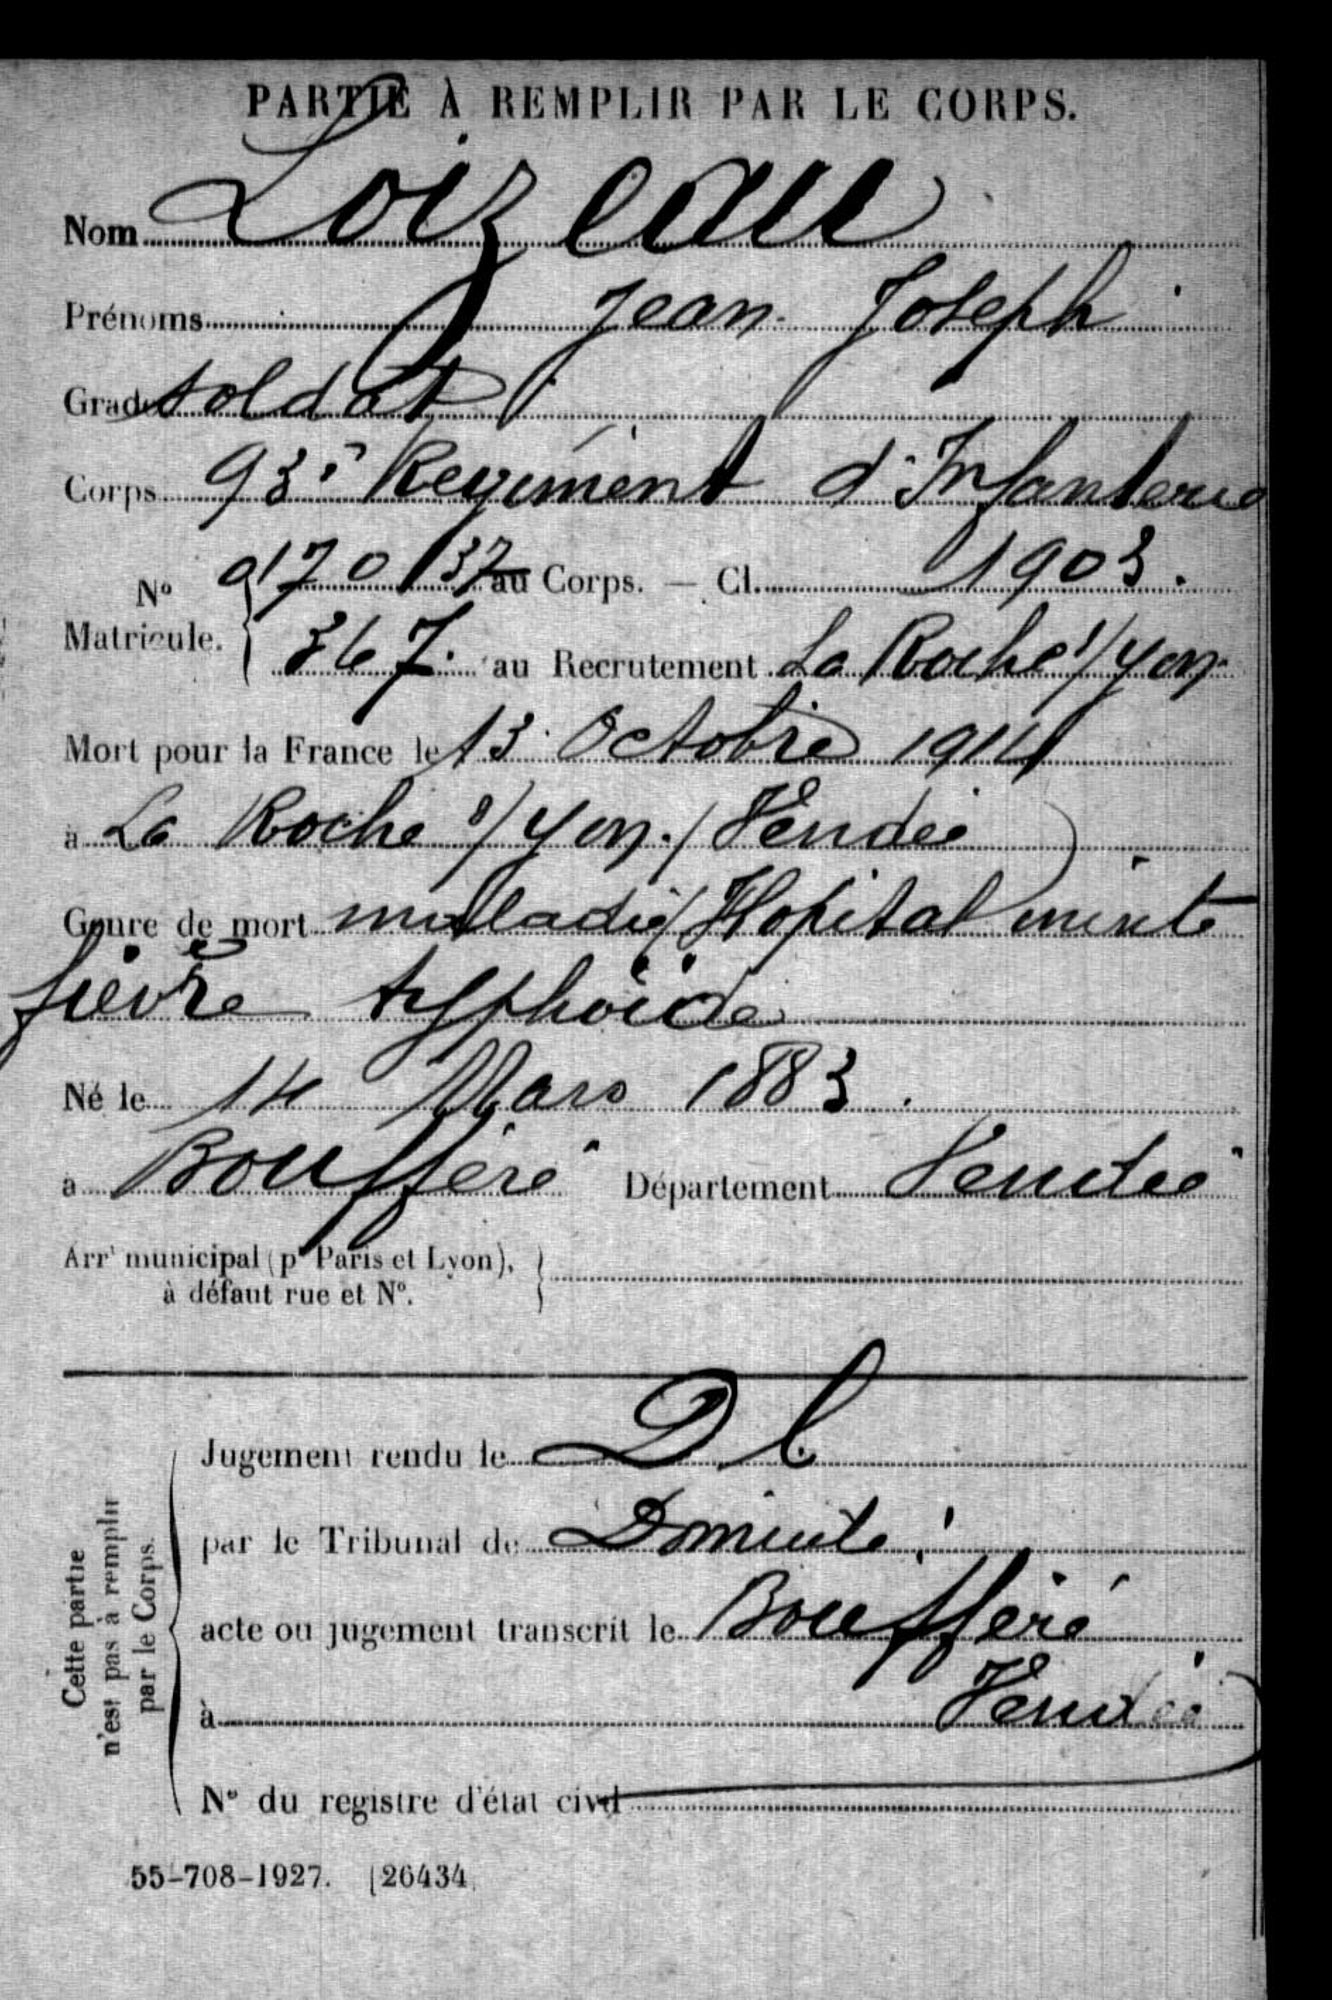 PARTIE À REMPLIR PAR LE CORPS.
Nom Loizeau
Prénoms Jean Joseph
Grade soldat
Corps 93e Régiment d'Infanterie
N° Matricule. { 0170137 au Corps. — Cl. 1903.
367. au Recrutement La Roche s/Yon
Mort pour la France le 13 Octobre 1914
à La Roche s/Yon (Vendée)
Genre de mort maladie Hopital mixte
fièvre typhoïde
Né le 14 Mars 1883.
à Boufféré Département Vendée
Arrt municipal (pr Paris et Lyon),
à défaut rue et N°.
Cette partie
n'est pas à remplir
par le Corps.
Jugement rendu le D C
par le Tribunal de
acte ou jugement transcrit le Boufféré
à Vendée
N° du registre d'état civil
55-708-1927. [26434.